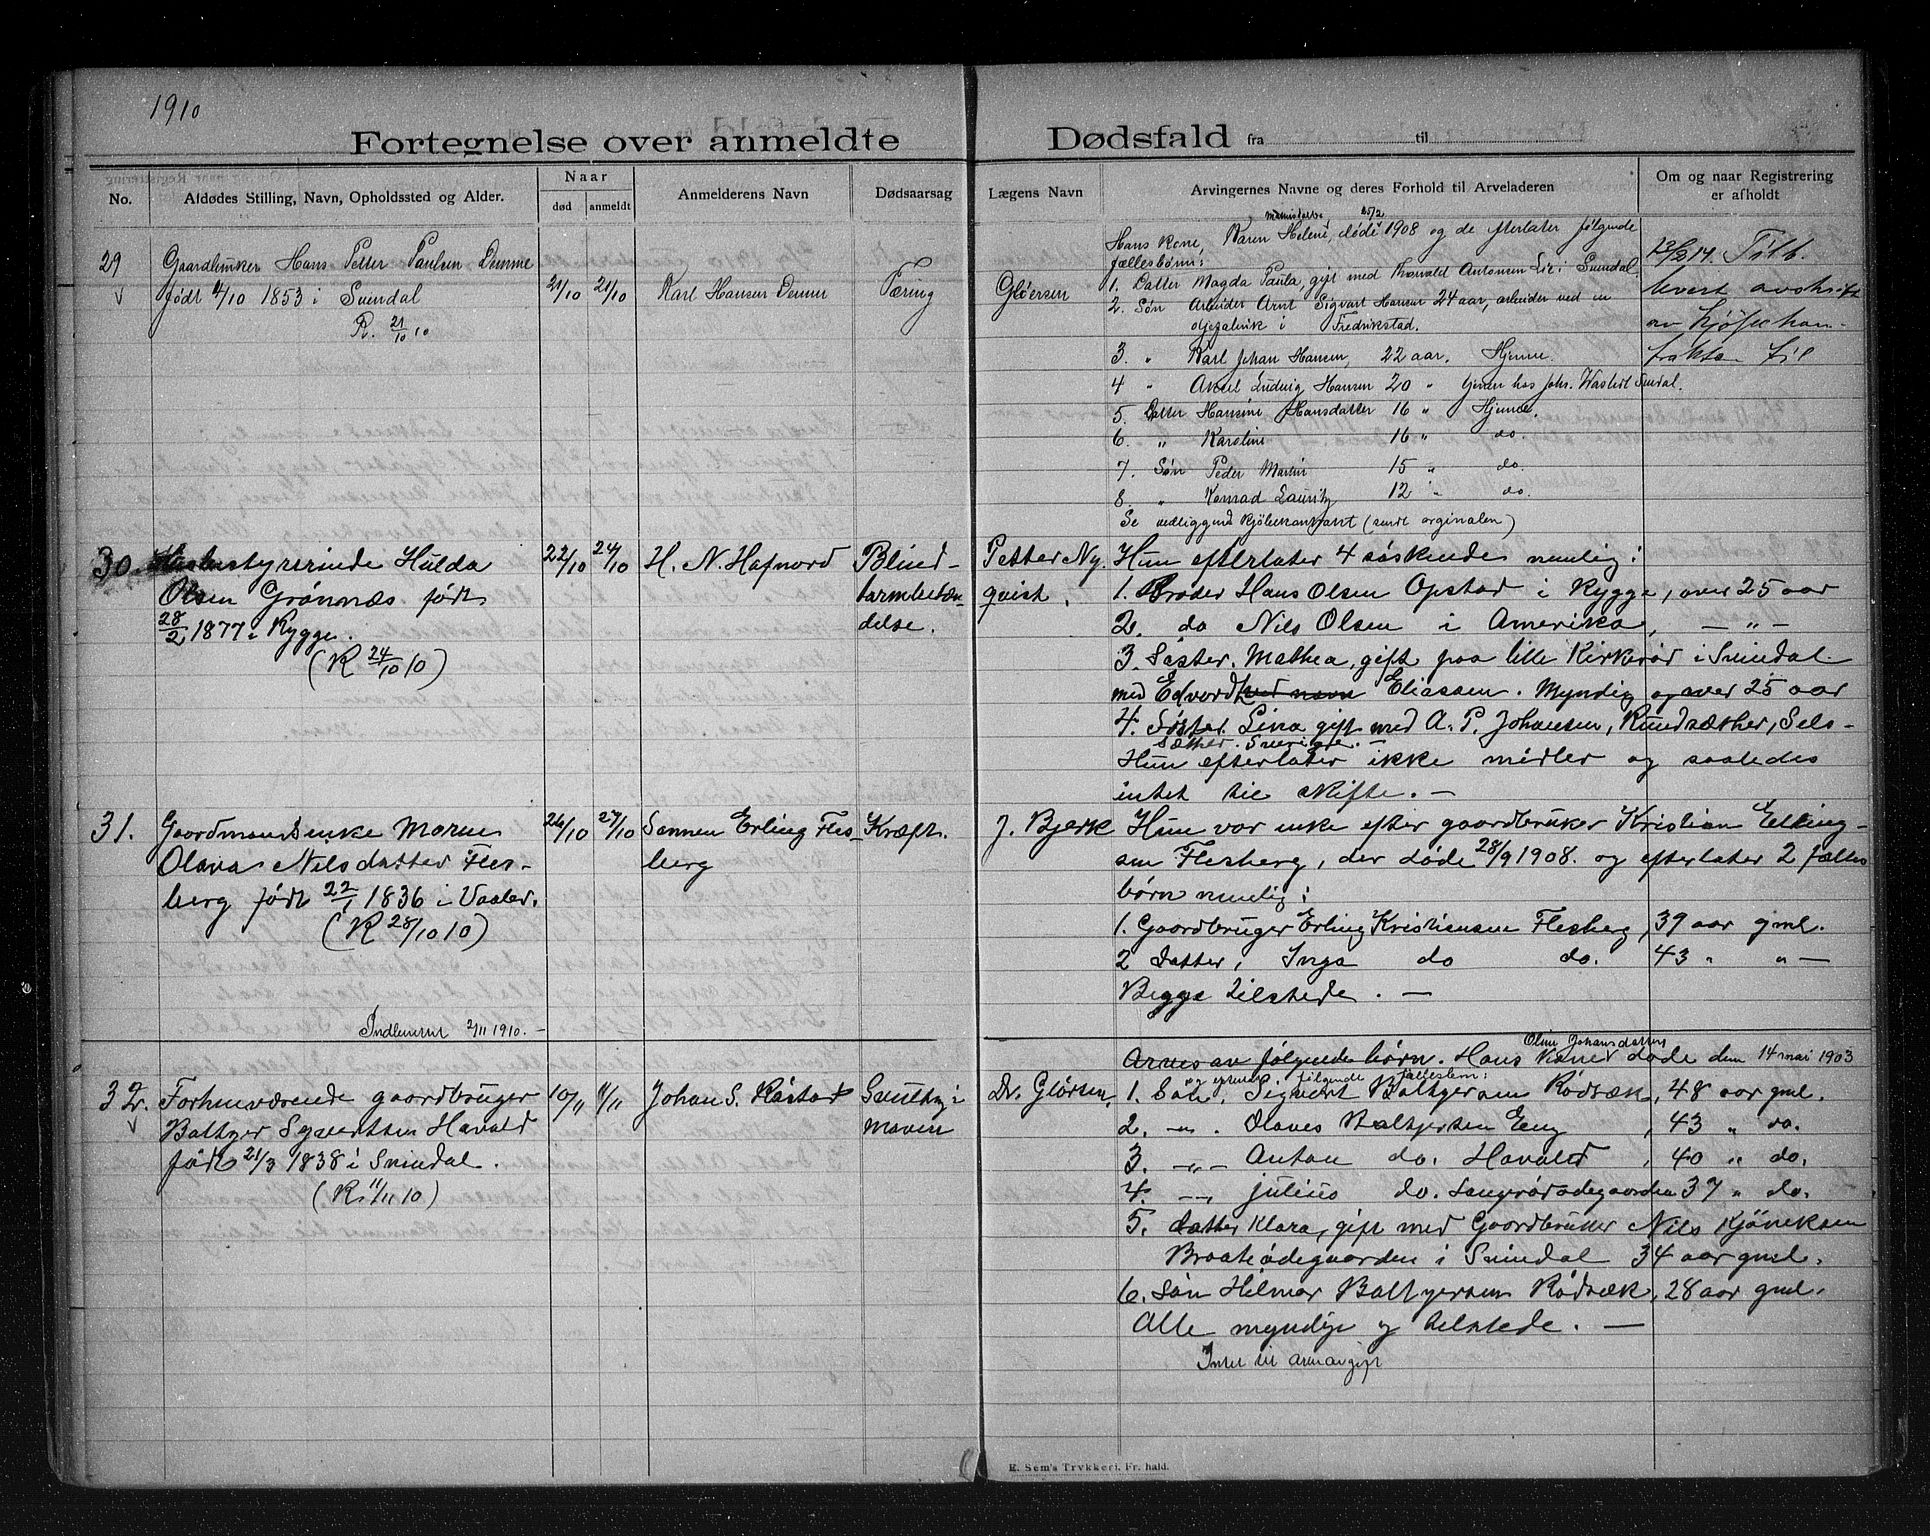 1910
Fortegnelse over anmeldte Dødsfald fra til
No.
Afdødes Stilling, Navn, Opholdssted og Alder.
Naar
død
anmeldt
Anmelderens Navn
Dødsaarsag
Lægens Navn
Arvingernes Navne og deres Forhold til Arveladeren
Om og naar Registrering
er afholdt
29
Gaardbruker Hans Petter Paulsen
født 4/10 1853 i Svindal
R. 21/10 10
21/10
21/10
Karl Hansen
Tæring
Gløersen
Hans kone, Karen Helene, døde 25/2 1908 og de efterlater følgende
fællesbørn:
1. Datter Magda Paula, gift med Thorvald Antonsen Lie i Svindal.
2. Søn Arbeider Arnt Sigvart Hansen 24 aar, arbeider ved en
i Fredrikstad.
3. " Karl Johan Hansen, 22 aar. Hjemme.
4 " Aksel Ludvig Hansen 20 " tjener hos Johs. Svindal.
5. Datter Hansine Hansdatter 16 " Hjemme.
6. " Karoline 16 " do.
7. Søn Peder Martin 15 " do.
8. " Konrad Lauritz 12 " do.
Se vedliggende (sendt orginalen)
14. Tilb.
levert avskrift
av kjøpekon-
trakten til
30.
styrerinde Hulda
Olsen Grønnæs født
28/2 1877 i Rygge.
(R 24/10 10)
22/10
24/10
H. N. Hafnord
Blind-
tarmbetæn-
delse.
Petter Ny-
quist.
Hun efterlater 4 søskende nemlig:
1. Broder Hans Olsen Opstad i Rygge, over 25 aar
2. do Nils Olsen i Amerika, — " —
3. Søster. Mathea, gift paa lille Kirkerød i Svindal
med Edvord ved navn Eliassen. Myndig og over 25 aar
4. Søster. Lina gift med A. P. Johansen, Rundsæther, Sels-
sæther. Sverige. —
Hun efterlater ikke midler og saaledes
intet til skifte. —
31.
Gaardmandsenke Maren
Olava Nilsdatter Fles-
berg født 22/1 1836 i Vaaler.
(R 28/10 10)
Indberettet 2/11 1910. —
26/10
27/10
Sønnen Erling Fles-
berg
Kræft.
J. Bjerk
Hun var enke efter gaardbruker Kristian Elling-
sen Flesberg, der døde 28/9 1908. og efterlater 2 fælles
børn nemlig:
1. Gaardbruger Erling Kristiansen Flesberg, 39 aar gml.
2 Datter, Inga do do. 43 " " —
Begge tilstede. —
32.
Forhenværende gaardbruger
Baltzer Syvertsen Havald
født 21/3 1838 i Svindal.
(R. 11/11 10)
10/11
11/11
Johan S. Røstad
Svulst i
maven
Dr. Glørsen,
Arves av følgende børn. Hans kone Oline Johansdatter døde den 14 mai 1903
følgende fællesbørn:
1. Søn, Sigvart Baltzersen Rødsæk, 48 aar gml.
2. — " . Olaves Baltzersen Eng, 43 " do.
3. — " — Anton do. Havald, 40 " do.
4. — " Julius do. Langrødødegaarden 37 " do.
5. datter Klara, gift med Gaardbruker Nils
Braateødegaarden i Svindal 34 aar gml.
6. Søn Hilmar Baltzersen Rødsæk, 28 aar gml.
Alle myndige og tilstede. —
Intet til arveavgift
E. Sem's Trykkeri, Fr. hald.